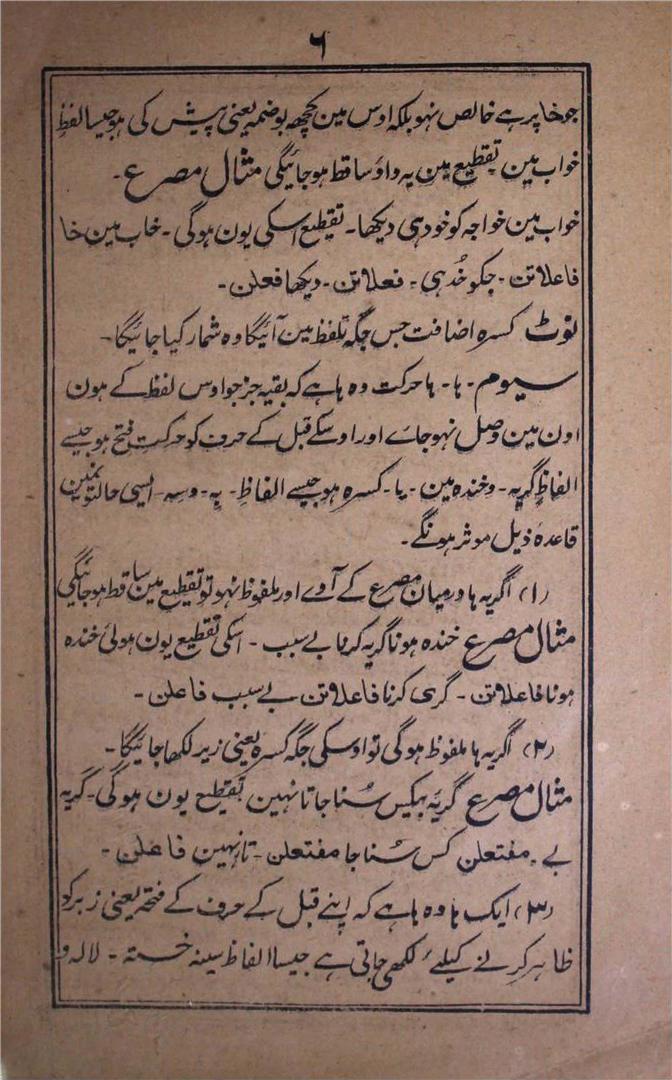 ۶
جو خا پر ہے خالص نہو بلکہ اوس مین کچھ بو ضمہ یعنی پیش کی ہو جیسا لفظ
خواب مین تقطیع مین یہ واؤ ساقط ہو جائیگی مثال مصرع ۔
خواب مین خواجہ کو خود ہی دیکھا ۔ تقطیع اسکی یون ہوگی ۔ خاب مین خا
فاعلاتن ۔ جکو خُد ہی ۔ فعلاتن ۔ دیکھا فعلن ۔
نوٹ کسرہ اضافت جس جگہ تلفظ مین آئیگا وہ شمار کیا جائیگا ۔
سیوم ۔ ہا ۔ ہا حرکت وہ ہا ہے کہ بقیہ جز جو اوس لفظ کے ہون
اون مین وصل نہو جاے اور اوسکے قبل کے حرف کو حرکت فتح ہو جیسے
الفاظِ گریہ ۔ و خندہ مین ۔ یا ۔ کسرہ ہو جیسے الفاظ ۔ بہ ۔ و سہ ۔ ایسی حالتونمین
قاعدہ ذیل موثر ہونگے ۔
(۱) اگر یہ ہا درمیان مصرع کے آوے اور ملفوظ نہو تو تقطیع مین ساقط ہو جائیگی
مثال مصرع خندہ ہونا گریہ کرنا بے سبب ۔ اسکی تقطیع یون ہوئی خندہ
ہونا فاعلاتن ۔ گری کرنا فاعلاتن بے سبب فاعلن ۔
(۲) اگر یہ ہا ملفوظ ہوگی تو اوسکی جگہ کسرہ یعنی زیر لکھا جائیگا ۔
مثال مصرع گریۂ بیکس سُنا جاتا نہین تقطیع یون ہوگی ۔ گریہ
بے ۔ مفتعلن کس سُنا جا مفتعلن ۔ تا نہین فاعلن ۔
(۳) ایک ہا وہ ہا ہے کہ اپنے قبل کے حرف کے فتحہ یعنی زبر کو
ظاہر کرنے کیلئے لکھی جاتی ہے جیسا الفاظ سینہ خستہ ۔ لالہ و